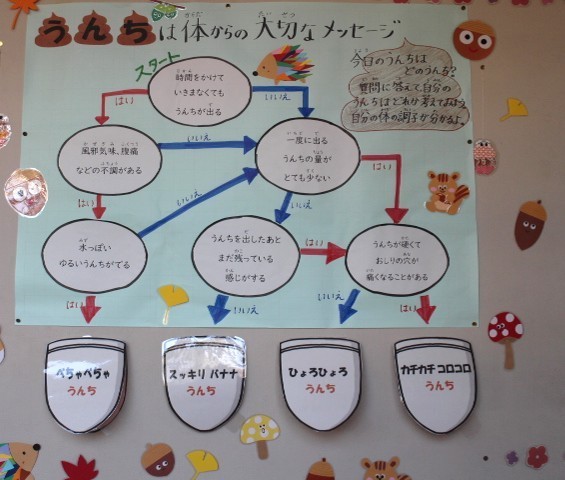 うんちは体からの大切なメッセージ
スタート
今日のうんちは
どのうんち?
質問に答えて自分の
うんちはどれか考えてみよう
自分の体の調子が分かるよ
時間をかけて
いきまなくても
うんちが出る
はい
いいえ
風邪気味、腹痛
などの不調がある
いいえ
一度に出る
うんちの量が
とても少ない
はい
はい
いいえ
いいえ
水っぽい
ゆるいうんちがでる
うんちを出したあと
まだ残っている
感じがする
はい
うんちが硬くて
おしりの穴が
痛くなることがある
はい
いいえ
いいえ
はい
べちゃべちゃ
うんち
スッキリ バナナ
うんち
ひょろひょろ
うんち
カチカチ コロコロ
うんち